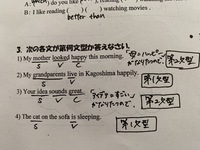 A: ) do you like ( ) reading (
B: I like reading ( )( ) watching movies .
better than
3. 次の各文が第何文型か答えなさい。
1) My mother looked happy this morning. 「母=ハッピー」がなりたつので、 第2文型
S V C
2) My grandparents live in Kagoshima happily. 第1文型
S V
3) Your idea sounds great. 「アイデア=すごい」がなりたつので、 第2文型
S V C
4) The cat on the sofa is sleeping. 第1文型
S V